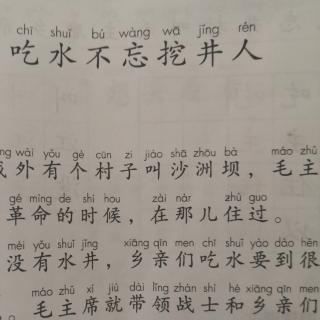 chī shuǐ bú wàng wā jǐng rén
吃水不忘挖井人
wài yǒu gè cūn zi jiào shā zhōu bà máo zhǔ
外有个村子叫沙洲坝，毛主
gé mìng de shí hou zài nàr zhù guo
革命的时候，在那儿住过。
méi yǒu shuǐ jǐng xiāng qīn men chī shuǐ yào dào hěn
没有水井，乡亲们吃水要到很
máo zhǔ xí jiù dài lǐng zhàn shì hé xiāng qīn men
。毛主席就带领战士和乡亲们